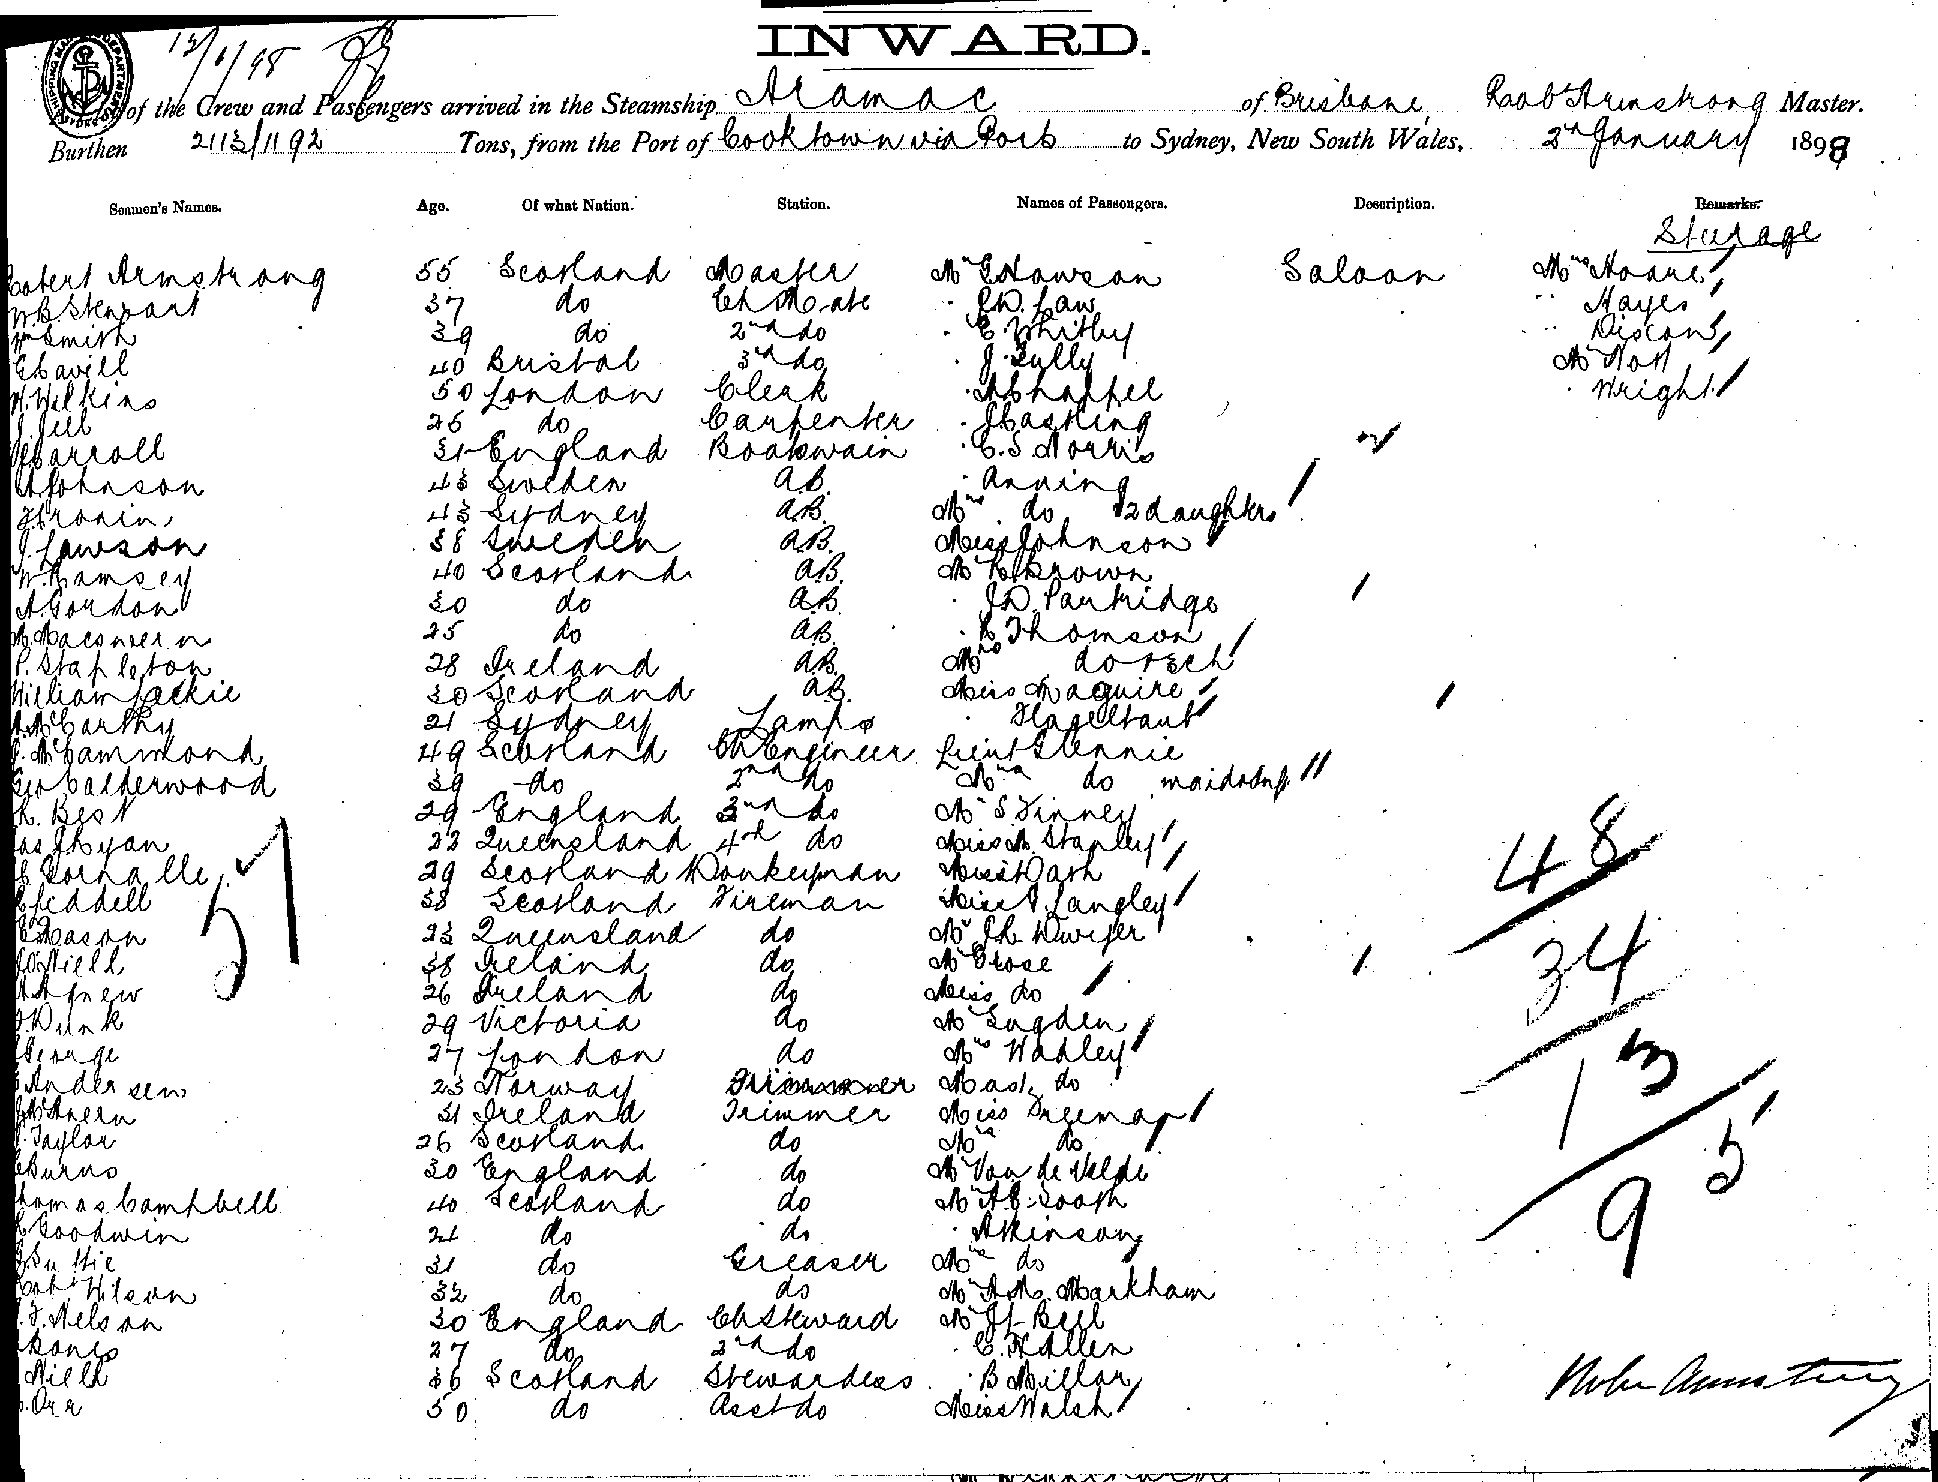 INWARD.
12/1/98
of the Crew and Passengers arrived in the Steamship Aramac of Brisbane, Robt Armstrong Master.
Burthen 2113/1192 Tons, from the Port of Cooktown via Ports to Sydney, New South Wales, 2nd January 1898
Seamen's Names. Age. Of what Nation. Station. Names of Passengers. Description. Remarks.
Sturage
Robert Armstrong 55 Scotland Master Mr Howson Saloon Mrs Hoare
W.B. Stewart 37 do Ch Mate " Law " Hayes
Wm Smith 39 do 2nd do " E Whitby
E Cavill 40 Bristol 3rd do " J. Gully Mr Nott
H. Wilkins 50 London Clerk " A Chappel " Wright
J. Jell 26 do Carpenter " J Casting
Carroll 31 England Boatswain " C. S Norris
A Johnson 43 Sweden A.B. " Anning
J Cronin 43 Sydney A.B. Mrs do 2 daughters
J. Lawson 38 Sweden A.B. Miss Johnson
W. Ramsey 40 Scotland A.B. Mr Brown
A. Gordon 30 do A.B. " J D. Partridge
25 do A.B. " R Thomson
P. Stapleton 28 Ireland A.B. Mrs do
William Lackie 30 Scotland A.B. Miss Maguire
McCarthy 21 Sydney Lamps "
McCammond 49 Scotland Ch Engineer Lieut Glennie
Geo Calderwood 39 do 2nd do Mrs do maid
R. Best 29 England 3rd do Mr S. Finney
Jas Ryan 23 Queensland 4th do Miss M. Stanley
29 Scotland Donkeyman Miss Dath
C Leddell 38 Scotland Fireman Miss Langley
Mason 23 Queensland do Mr Dwyer
O'Neill 38 Ireland do Mr Grose
A Agnew 26 Ireland do Miss do
J. Dunk 29 Victoria do Mr Sugden
George 27 London do Mrs Wadley
Andersen 23 Norway Trimmer Mast. do
McAnern 31 Ireland Trimmer Miss Freeman
J. Taylor 26 Scotland do Mrs do
C Burns 30 England do Mr Van de Velde
Thomas Campbell 40 Scotland do Mr A.E. Sooth
C Goodwin 21 do do " Atkinson
J Suttie 31 do Greaser Mrs do
Robt Wilson 32 do do Mr A.M. Markham
J. Nelson 30 England Ch Steward Mr J L Bell
Bones 27 do 2nd do " C. H Allen
Neill 36 Scotland Stewardess " B Millar
Orr 50 do Asst do Miss Walsh
57
48
34
13
95
Robt Armstrong